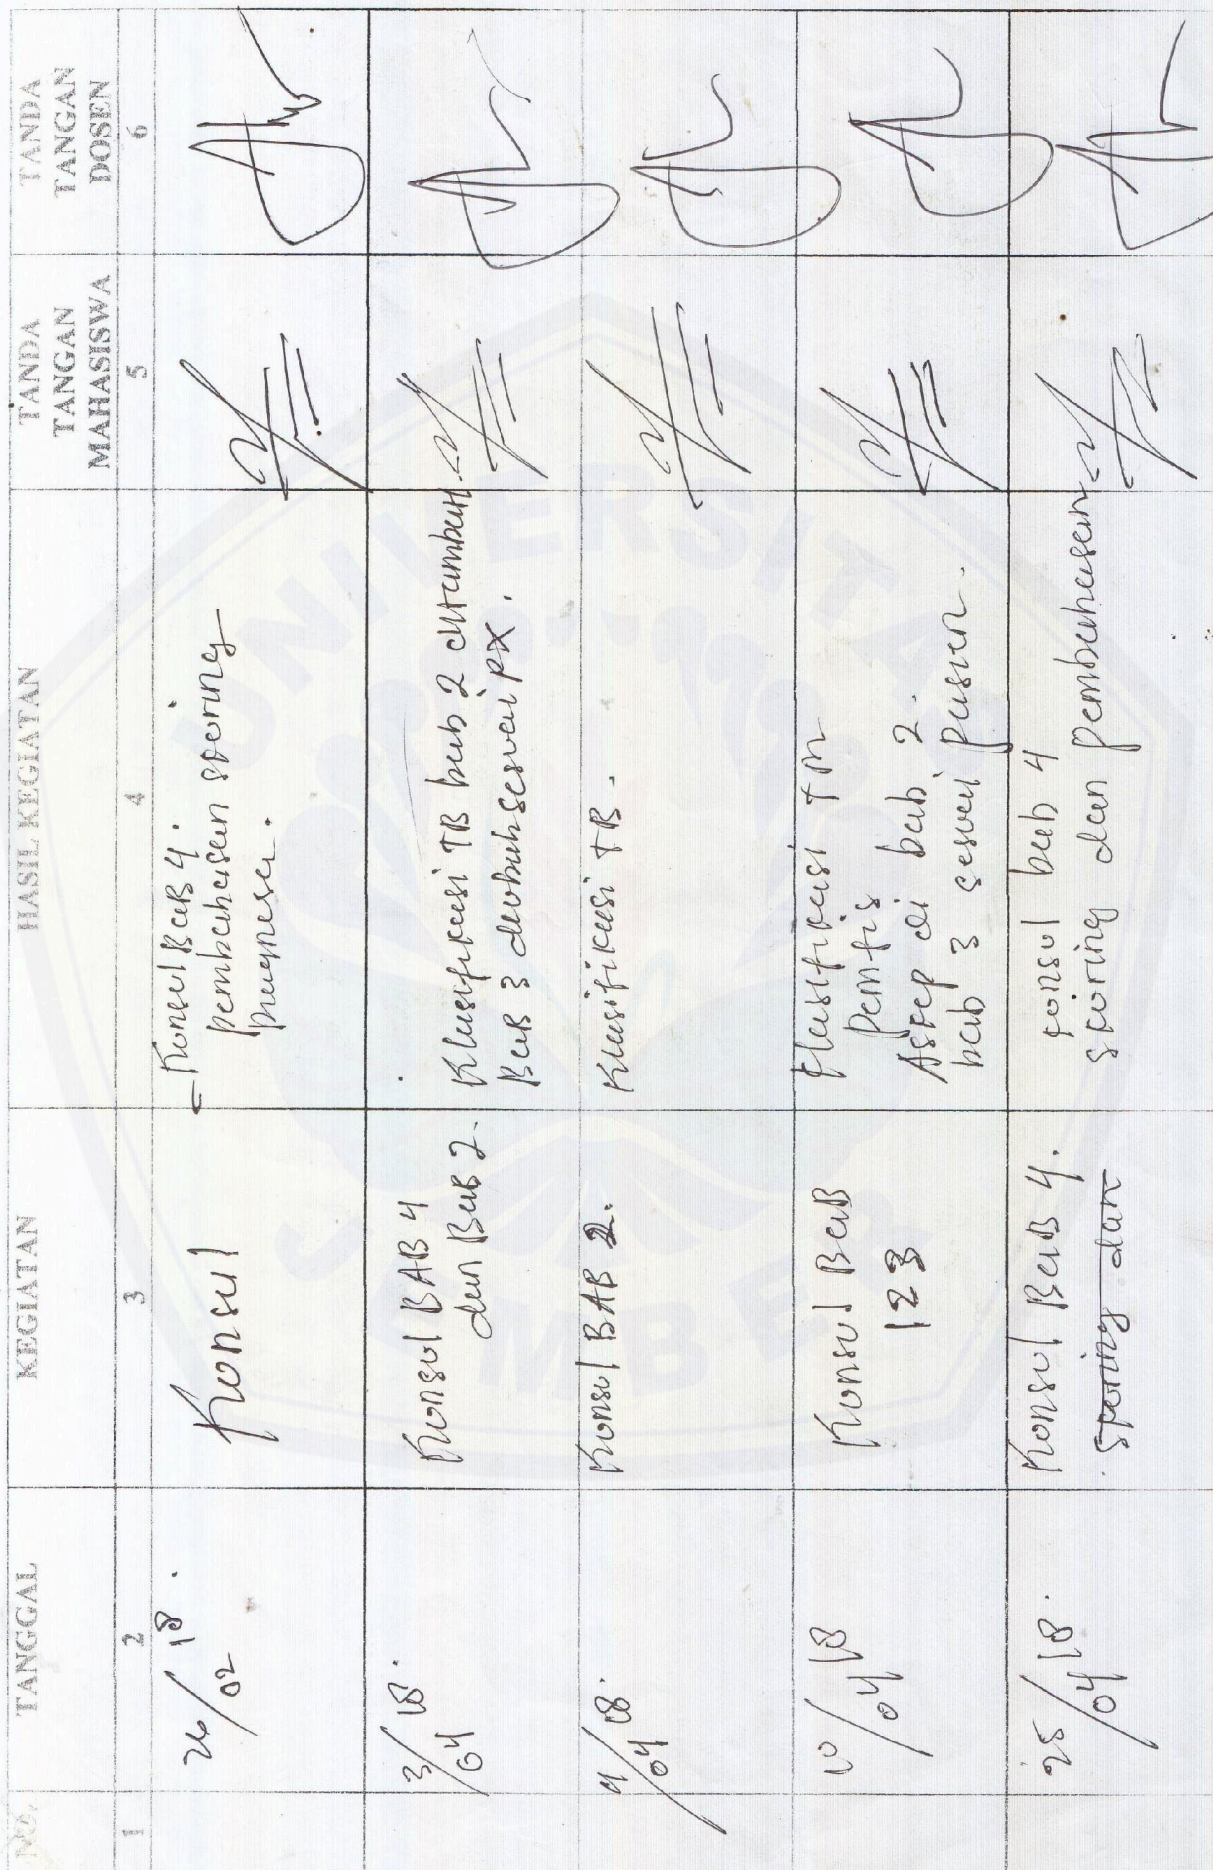 NO.
TANGGAL
KEGIATAN
HASIL KEGIATAN
TANDA
TANGAN
MAHASISWA
TANDA
TANGAN
DOSEN
1
2
3
4
5
6
26/02 18.
Konsul
- Konsul Bab 4.
pembahasan scoring
3/04 18.
Konsul BAB 4
dan Bab 2.
Klasifikasi TB bab 2 ditambah
Bab 3 diubah sesuai px.
4/04 18.
Konsul BAB 2.
Klasifikasi TB.
10/04 18
Konsul Bab
1 2 3
Klasifikasi
Askep di bab 2.
bab 3 sesuai pasien.
25/04 18.
Konsul Bab 4.
konsul bab 4
scoring dan pembahasan
UNIVERSITAS
JEMBER